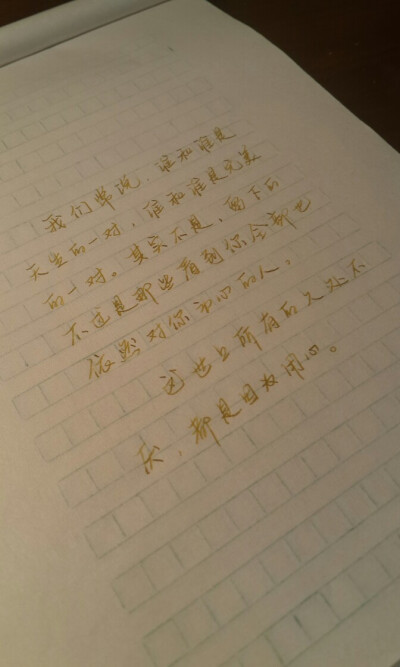 我们常说，谁和谁是
天生的一对，谁和谁是完美
的一对。其实不是，留下的
不过是那些看到你全部也
依然对你初心的人，
这世上所有的久处不
厌，都是因为用心。